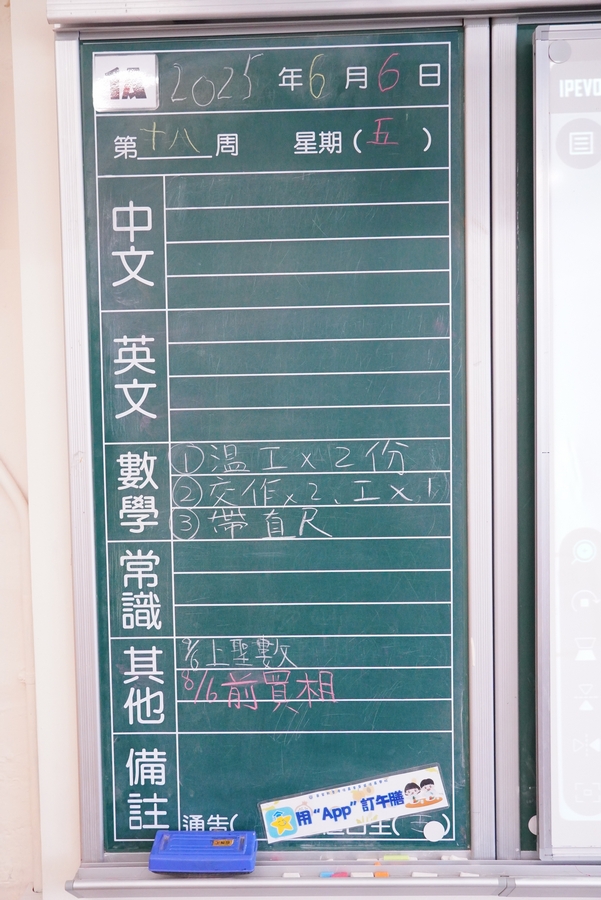 2025年6月6日
第十八周 星期(五)
IPEVO
中文
英文
數學
①溫工x2份
②交作x2、工x1
③帶直尺
常識
其他
9/6上聖數
8/6前買相
備註
通告(
用“App”訂午膳